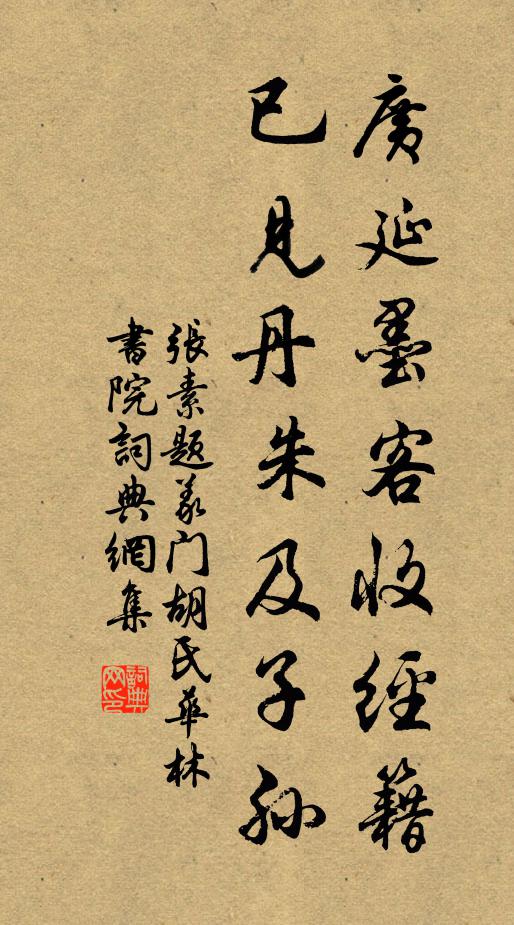 廣延墨客收經籍
已見丹朱及子孫
張素題義门胡氏華林
書院詞典網集
詞典網印